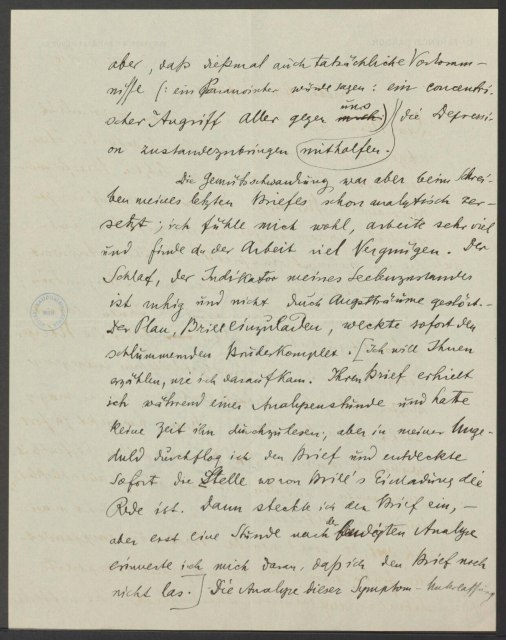 aber, daß dießmal auch tatsächliche Vorkomm-
nisse (: ein Paranoiker würde sagen: ein concentri-
scher Angriff Aller gegen uns mich) die Depressi-
on zustandezubringen mithalfen.
Die Gemütsschwankung war aber beim Schrei-
ben meines letzten Briefes schon analytisch zer-
setzt; ich fühle mich wohl, arbeite sehr viel
und finde an der Arbeit viel Vergnügen. Der
Schlaf, der Indikator meines Seelenzustandes
ist ruhig und nicht durch Angstträume gestört.
Der Plan, Brill einzuladen, weckte sofort den
schlummenden Bruderkomplex. [Ich will Ihnen
erzählen, wie ich darauf kam. Ihren Brief erhielt
ich während einer Analysenstunde und hatte
keine Zeit ihn durchzulesen; aber in meiner Unge-
duld durchflog ich den Brief und entdeckte
sofort die Stelle wo von Brill's Einladung die
Rede ist. Dann steckte ich den Brief ein, –
aber erst eine Stunde nach der beendigten Analyse
erinnerte ich mich daran, daß ich den Brief noch
nicht las.] Die Analyse dieser Symptom-Unterlassung